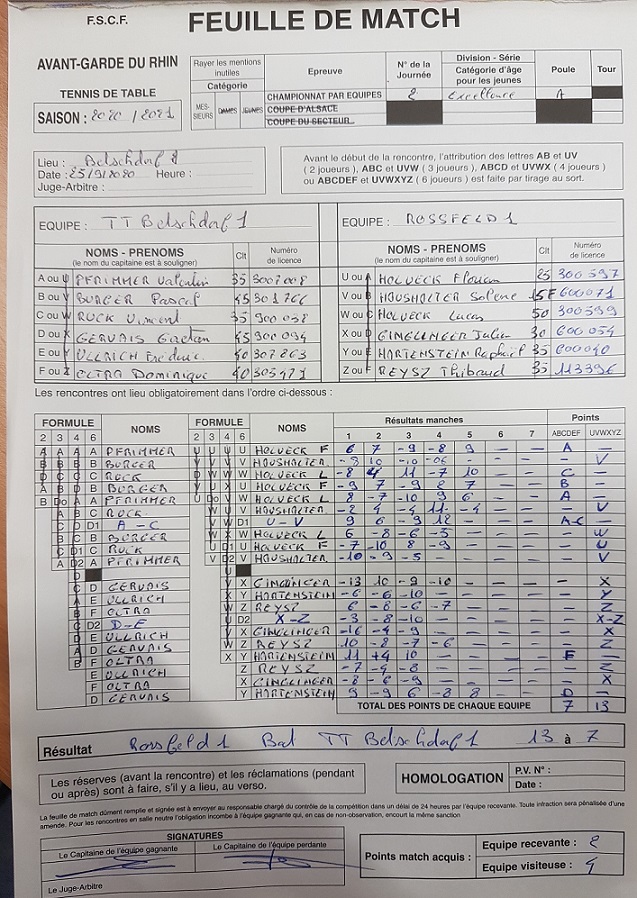 F.S.C.F.
FEUILLE DE MATCH
AVANT-GARDE DU RHIN
TENNIS DE TABLE
SAISON : 2020 / 2021
Rayer les mentions inutiles
Catégorie
MESSIEURS DAMES JEUNES
Epreuve
CHAMPIONNAT PAR EQUIPES
COUPE D'ALSACE
COUPE DU SECTEUR
N° de la Journée
2
Division - Série
Catégorie d'âge pour les jeunes
Excellence
Poule
A
Tour
Lieu : Betschdorf
Date : 25/9/2020 Heure :
Juge-Arbitre :
Avant le début de la rencontre, l'attribution des lettres AB et UV
( 2 joueurs ), ABC et UVW ( 3 joueurs ), ABCD et UVWX ( 4 joueurs )
ou ABCDEF et UVWXYZ ( 6 joueurs ) est faite par tirage au sort.
EQUIPE : TT Betschdorf 1
EQUIPE : ROSSFELD 1
NOMS - PRENOMS
(le nom du capitaine est à souligner)
Clt
Numéro de licence
NOMS - PRENOMS
(le nom du capitaine est à souligner)
Clt
Numéro de licence
A ou U PFRIMMER Valentin 35
B ou V BURGER Pascal 45 301766
C ou W RUCK Vincent 35 300038
D ou X GERVAIS Gaetan 45 300094
E ou Y ULLRICH 40 307263
F ou Z OLTRA Dominique 40 305471
U ou A HOLVECK Florian 25 300597
V ou B HAUSHALTER Solene 15F 600071
W ou C HOLVECK Lucas 50 300599
X ou D GINGLINGER Julien 30 600054
Y ou E HARTENSTEIN Raphaël 35 600040
Z ou F REYSZ Thibaud 35 113396
Les rencontres ont lieu obligatoirement dans l'ordre ci-dessous :
FORMULE
2 3 4 6
NOMS
FORMULE
2 3 4 6
NOMS
Résultats manches
1 2 3 4 5 6 7
Points
ABCDEF UVWXYZ
A PFRIMMER U HOLVECK F 6 7 -9 -8 9 - - A -
B BURGER V HAUSHALTER -8 10 -10 -06 - - - - V
C ROCK W HOLVECK L -8 4 11 -7 10 - - C -
B BURGER U HOLVECK F -9 7 -9 8 7 - - B -
A PFRIMMER W HOLVECK L 8 -7 -10 9 6 - - A -
C ROCK V HAUSHALTER -2 4 -4 11 -4 - - - V
D1 A - C D1 U - V 9 6 -9 12 - - - A-C -
B BURGER W HOLVECK L 6 -8 -6 -5 - - - - W
C ROCK U HOLVECK F -7 -10 8 -9 - - - - U
A PFRIMMER V HAUSHALTER -10 -9 -5 - - - - - V
D GERVAIS X GINGLINGER -13 10 -9 -10 - - - - X
E ULLRICH Y HARTENSTEIN -6 -6 -10 - - - - - Y
F OLTRA Z REYSZ 6 -8 -6 -7 - - - - Z
D2 D-E D2 X-Z -3 -8 -10 - - - - - X-Z
E ULLRICH X GINGLINGER -16 -4 -9 - - - - - X
D GERVAIS Z REYSZ 10 -8 -7 -6 - - - - Z
F OLTRA Y HARTENSTEIN 11 +4 10 - - - - F -
E ULLRICH Z REYSZ -7 -4 -8 - - - - - Z
F OLTRA X GINGLINGER -8 -6 -9 - - - - - X
D GERVAIS Y HARTENSTEIN 9 -9 6 -8 8 - - D -
TOTAL DES POINTS DE CHAQUE EQUIPE 7 13
Résultat Rossfeld 1 Bat TT Betschdorf 1 13 à 7
Les réserves (avant la rencontre) et les réclamations (pendant
ou après) sont à faire, s'il y a lieu, au verso.
HOMOLOGATION
P.V. N° :
Date :
La feuille de match dûment remplie et signée est à envoyer au responsable chargé du contrôle de la compétition dans un délai de 24 heures par l'équipe recevante. Toute infraction sera pénalisée d'une
amende. Pour les rencontres en salle neutre l'obligation incombe à l'équipe gagnante qui, en cas de non-observation, encourt la même sanction
SIGNATURES
Le Capitaine de l'équipe gagnante
Le Capitaine de l'équipe perdante
Le Juge-Arbitre
Points match acquis :
Equipe recevante : 2
Equipe visiteuse : 4